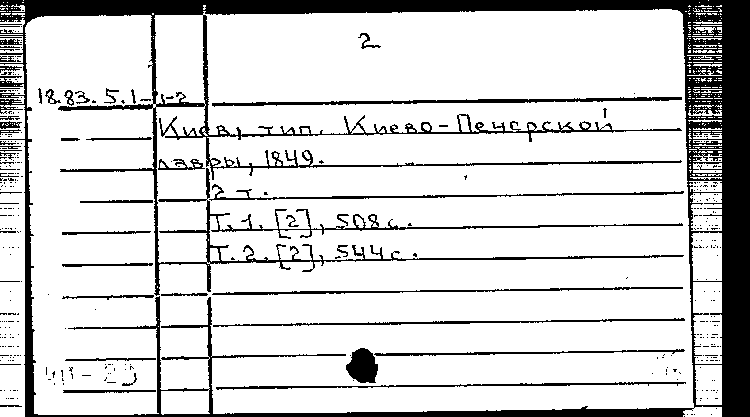 2
18.83.5.1-1-2
Киев, тип. Киево-Печерской
лавры, 1849.
2 т.
Т. 1. [2], 508 с.
Т. 2. [2], 544 с.